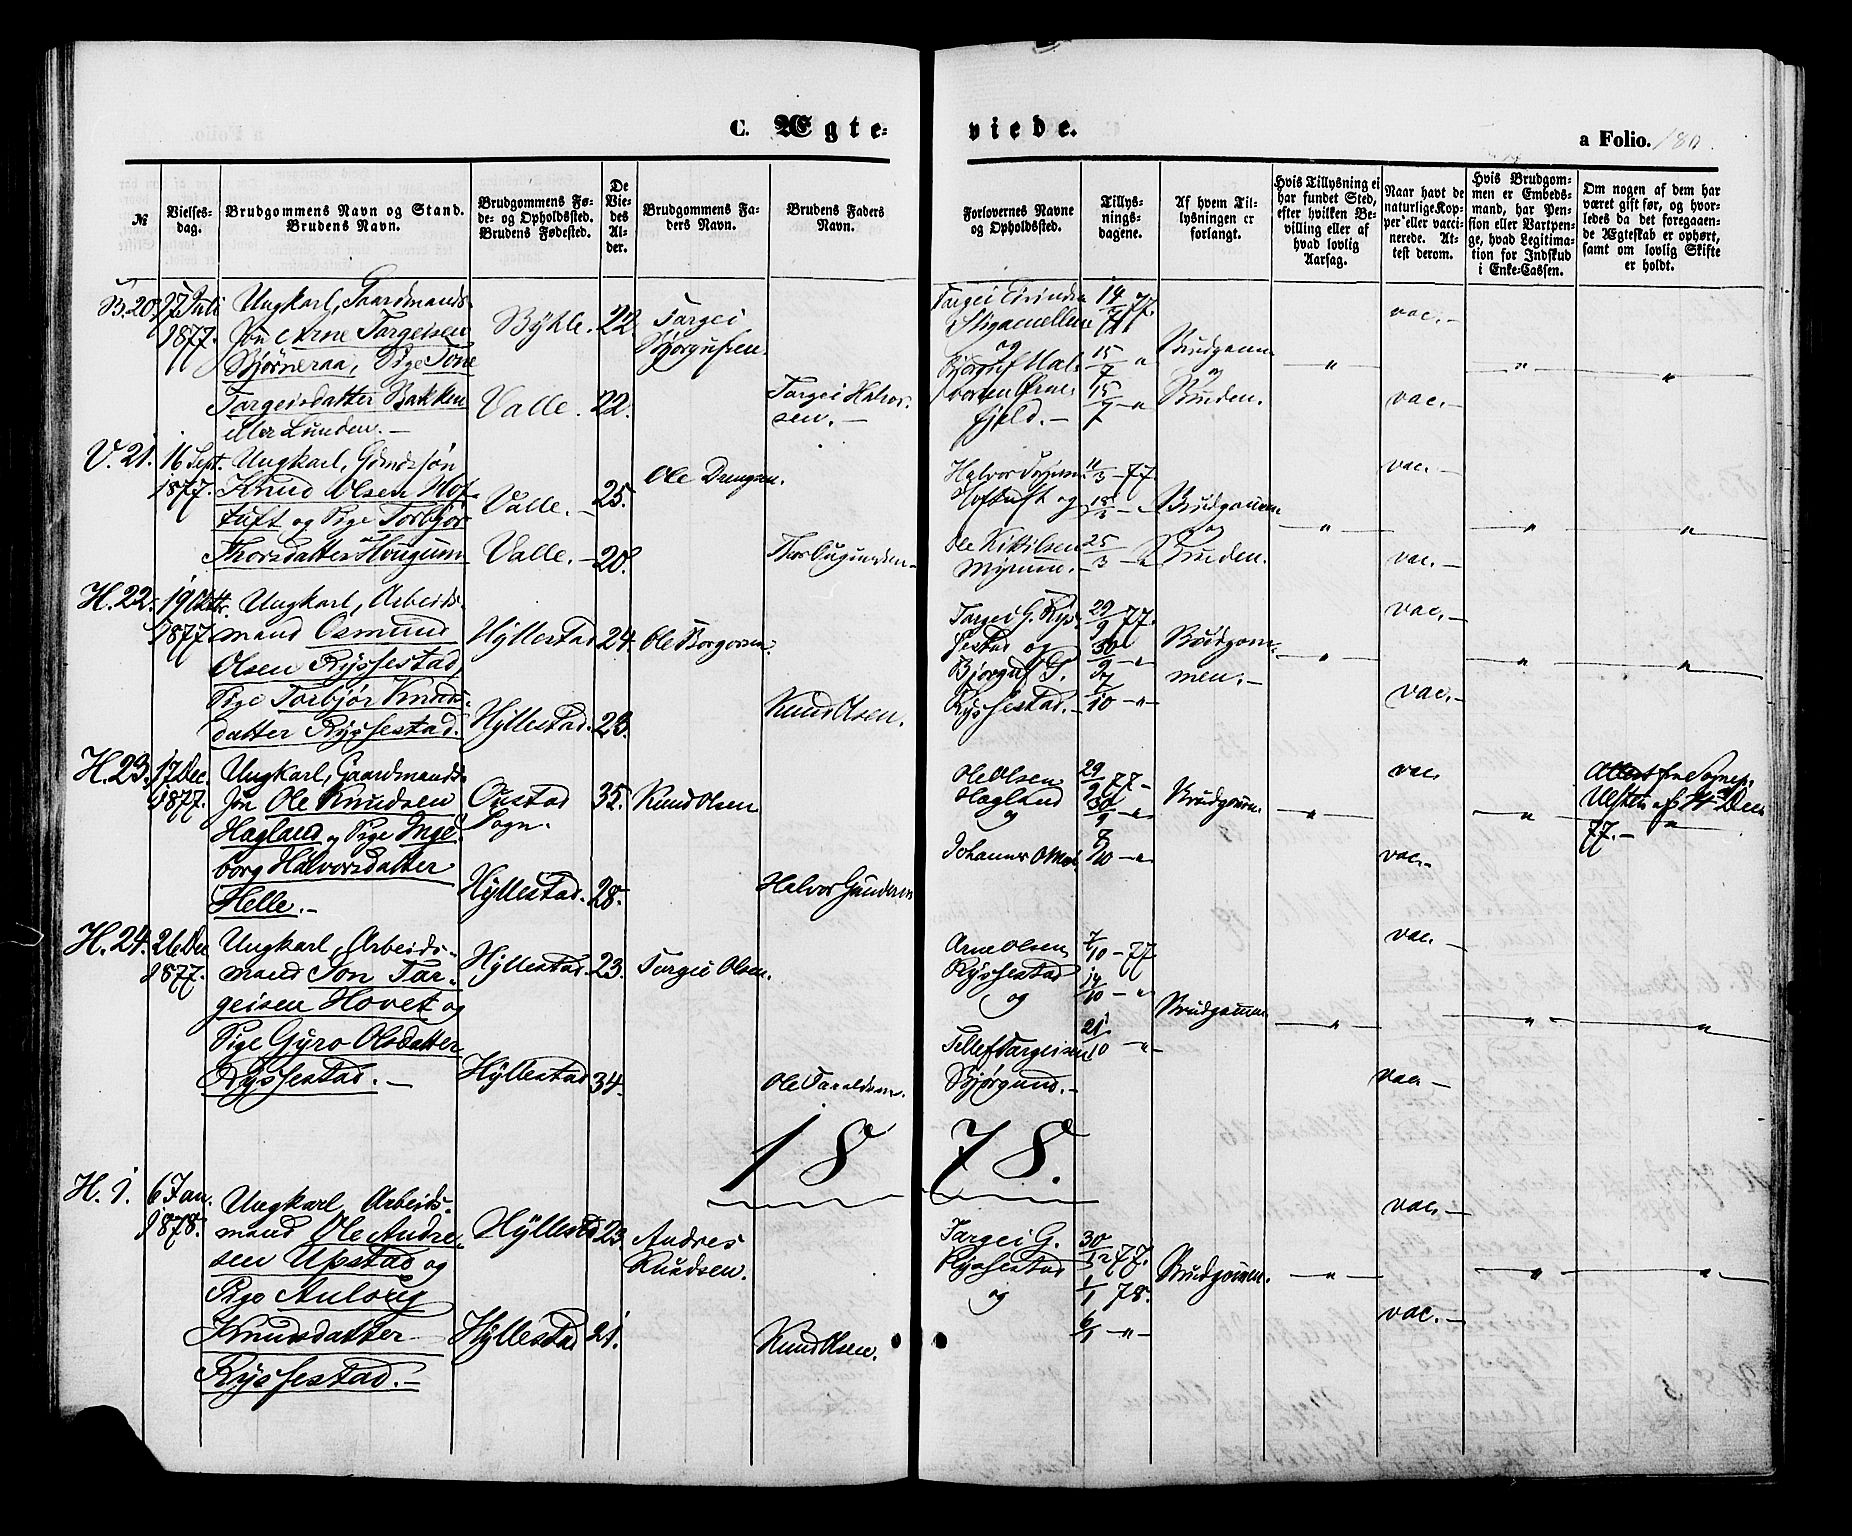 C. Ægte=
viede.
a Folio. 180.
№
Vielses-
dag.
Brudgommens Navn og Stand.
Brudens Navn.
Brudgommens Fø-
de- og Opholdssted.
Brudens Fødested.
De
Vie-
des
Al-
der.
Brudgommens Fa-
ders Navn.
Brudens Faders
Navn.
Forlovernes Navne
og Opholdssted.
Tillys-
nings-
dagene.
Af hvem Til-
lysningen er
forlangt.
Hvis Tillysning ei
har fundet Sted,
efter hvilken Be-
villing eller af
hvad lovlig
Aarsag.
Naar havt de
naturlige Kop-
per eller vacci-
nerede. At-
test derom.
Hvis Brudgom-
men er Embeds-
mand, har Pen-
sion eller Vartpen-
ge, hvad Legitima-
tion for Indskud
i Enke-Cassen.
Om nogen af dem har
været gift før, og hvor-
ledes da det foregaaen-
de Ægteskab er ophørt,
samt om lovlig Skifte
er holdt.
B. 20. 17 Juli
1877.
Ungkarl, Gaardmands-
søn Arne Targeisen
Bjørneraa, Pige Tone
Targeisdatter Bakken
eller Lunden. —
Bykle. 22.
Valle. 22.
Targei
Bjørgufsen.
Targei Halvor-
sen. —
Targei Eivindsen
og
fjeld. —
14/7 77.
15/7 "
15/7 - "
Brudgommen
og
Bruden.
"
vac. —
vac. —
"
"
V. 21. 16 Sept.
1877.
Ungkarl, Gmdssøn
Knud Olsen Hof-
tuft og Pige Torbjør
Thorsdatter Haugum
Valle. — 25.
Valle. — 20.
Ole Drengsen.
Halvor
Hoftuft og
Ole Kittilsen
Myrum. —
11/3 - 77.
18/3 - "
25/3 - "
Brudgommen
og
Bruden.
"
vac. —
vac. —
"
"
H. 22. 19 Octbr.
1877.
Ungkarl, Arbeids-
mand Osmund
Olsen Ryssestad,
Pige Torbjør Knuds-
datter Ryssestad.
Hyllestad 24.
Hyllestad. 23.
Ole Torgersen.
Knud Olsen.
Targei G. Rys-
sestad og
Bjørguf T.
Ryssestad. —
29/9 77.
30/9 - "
7/10 - "
Brudgom-
men. —
"
vac. —
vac. —
"
"
H. 23. 17 Dec.
1877.
Ungkarl, Gaardmands-
søn Ole Knudsen
Hagland og Pige Inge-
borg Halvorsdatter
Helle. —
Oustad
Sogn.
35.
Hyllestad. 28.
Knud Olsen
Halvor Gundersen
Ole Olsen
Hagland
og
Johannes O.
29/9 77 -
30/9 - "
7/10 - "
Brudgommen.
"
vac.
vac. —
"
Attest fra Sognepr.
Ulsten af 4 Dec
77. — "
H. 24. 26 Dec
1877.
Ungkarl, Arbeids-
mand Jon Tar-
geisen Hovet og
Pige Gyro Olsdatter
Ryssestad. —
Hyllestad. 23.
Hyllestad 34.
Targei Olsen.
Ole Taraldsen.
Arne Olsen
Ryssestad
og
Tellef Targeisen
Bjørgund. —
7/10 - 77
14/10 - "
21/10 - "
Brudgommen
"
vac. —
vac. —
"
"
1878.
H. 1. 6 Jan.
1878.
Ungkarl, Arbeids-
mand Ole Andre-
sen Upstad og
Pige Anlaug
Knudsdatter
Ryssestad. —
Hyllestad 23.
Hyllestad 21.
Andres
Knudsen.
Knud Olsen.
Targei G.
Ryssestad
og
30/12 77.
1/1 78.
6/1 - "
Brudgommen.
"
vac. —
vac. —
"
"